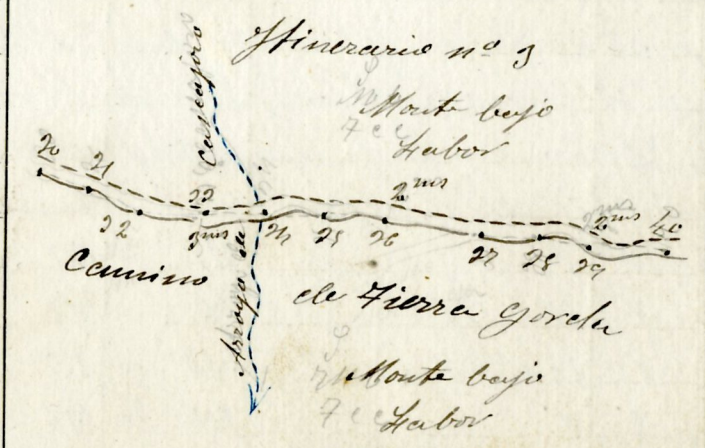 Itinerario nº 3
Monte bajo
Labor
Arroyo de Cascajoso
20
21
22
23
3ms
24
25
26
2ms
27
28
29
2ms
Camino de Tierra Gorda
Monte bajo
Labor